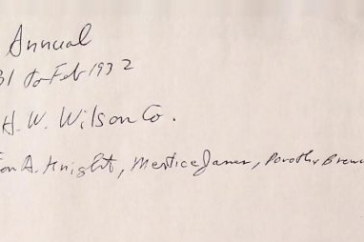 Annual
31 to Feb 1932
H. W. Wilson Co.
on A. Knight, Mertice James, Dorothy Brown